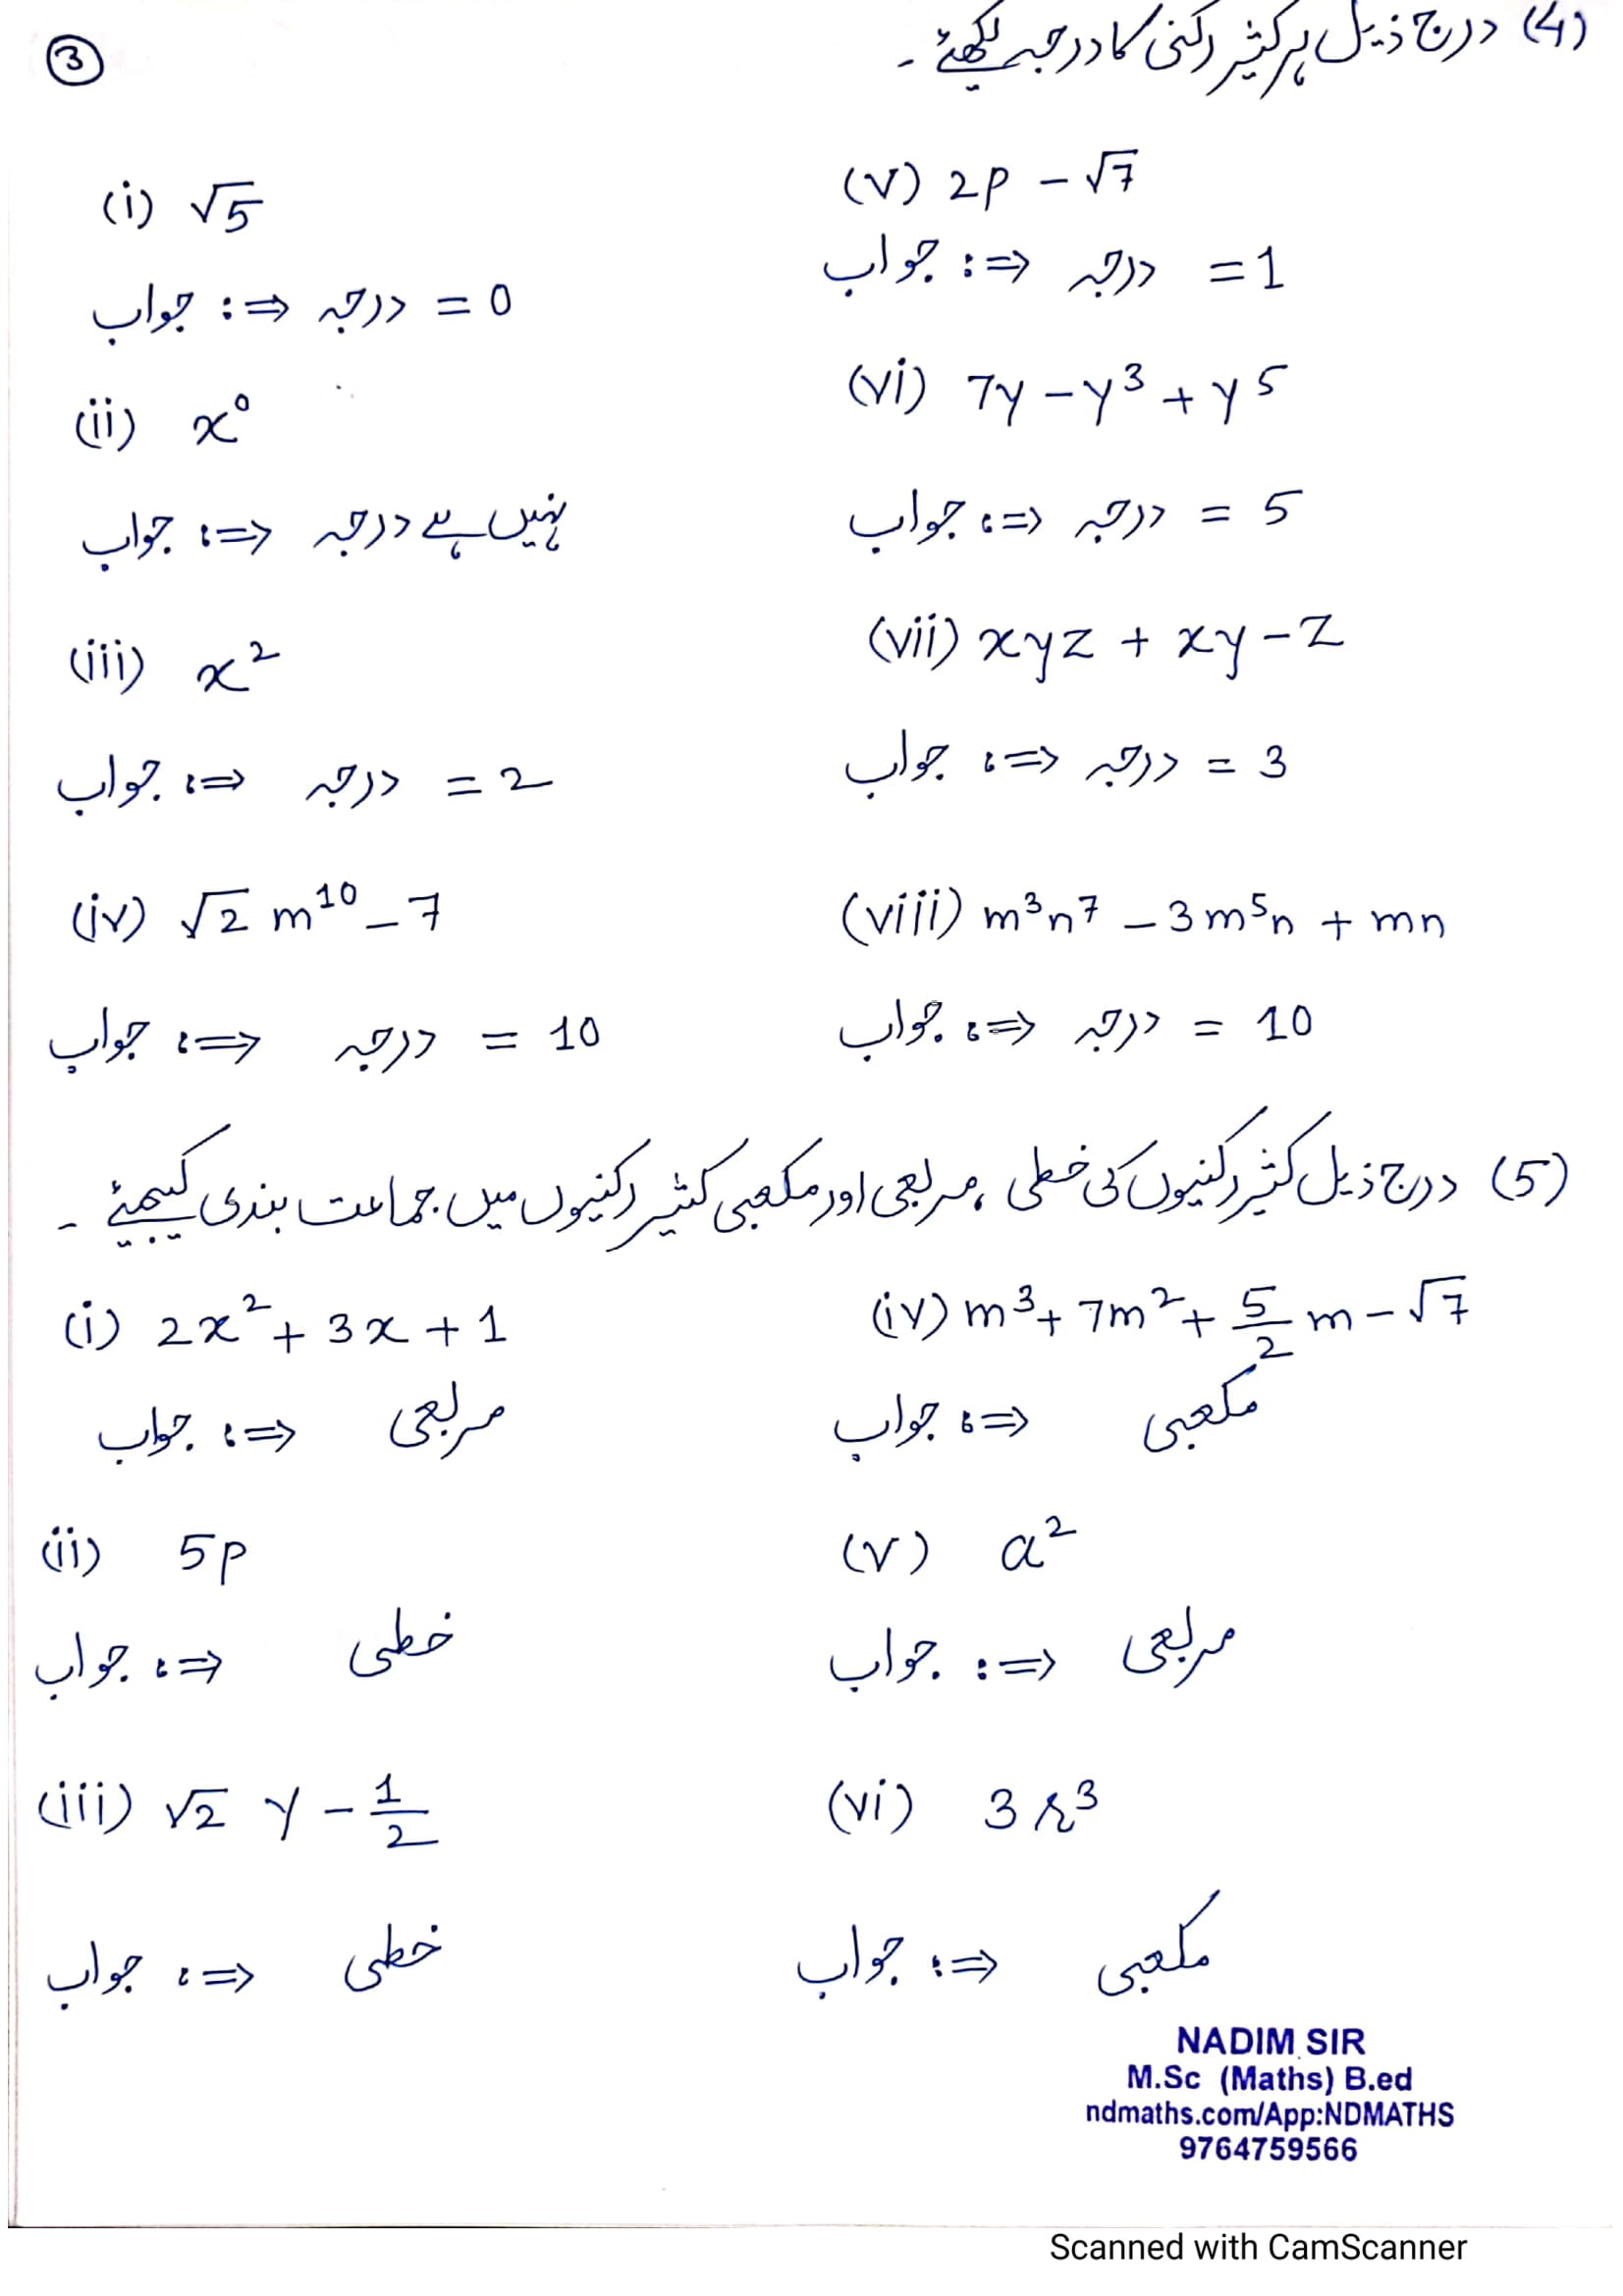 ③
(4) درج ذیل ہر کثیر رکنی کا درجہ لکھئے ۔
(i) √5
جواب :⇒ درجہ = 0
(ii) x⁰
جواب :⇒ درجہ نہیں ہے
(iii) x²
جواب :⇒ درجہ = 2
(iv) √2 m¹⁰ − 7
جواب :⇒ درجہ = 10
(v) 2p − √7
جواب :⇒ درجہ = 1
(vi) 7y − y³ + y⁵
جواب :⇒ درجہ = 5
(vii) xyz + xy − z
جواب :⇒ درجہ = 3
(viii) m³n⁷ − 3m⁵n + mn
جواب :⇒ درجہ = 10
(5) درج ذیل کثیر رکنیوں کی خطی ، مربعی اور مکعبی کثیر رکنیوں میں جماعت بندی کیجیئے ۔
(i) 2x² + 3x + 1
جواب :⇒ مربعی
(ii) 5p
جواب :⇒ خطی
(iii) √2 y − 1/2
جواب :⇒ خطی
(iv) m³ + 7m² + 5/2 m − √7
جواب :⇒ مکعبی
(v) a²
جواب :⇒ مربعی
(vi) 3r³
جواب :⇒ مکعبی
NADIM SIR
M.Sc (Maths) B.ed
ndmaths.com/App:NDMATHS
9764759566
Scanned with CamScanner